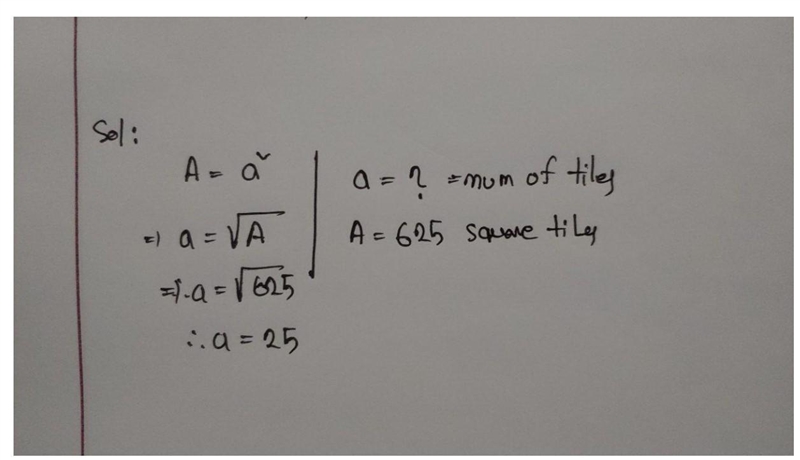 Sol:
A = a²
⇒ a = √A
⇒ a = √625
∴ a = 25
a = ? = num of tiles
A = 625 square tiles